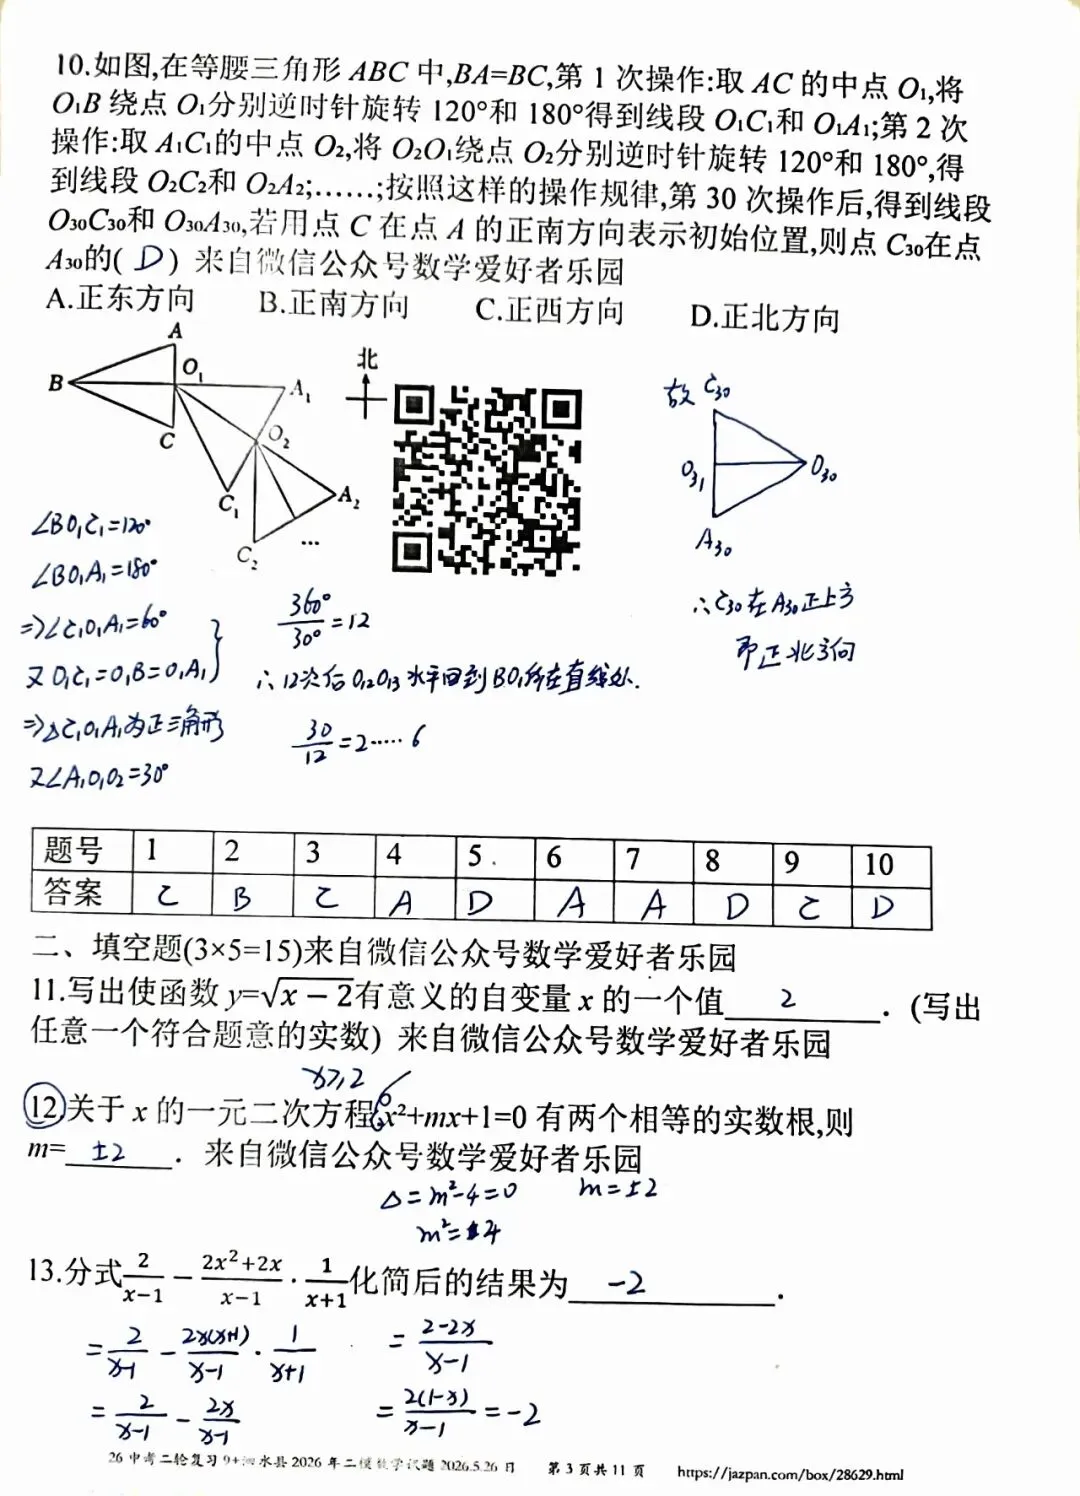 10.如图,在等腰三角形 ABC 中,BA=BC,第 1 次操作:取 AC 的中点 O₁,将
O₁B 绕点 O₁分别逆时针旋转 120°和 180°得到线段 O₁C₁和 O₁A₁;第 2 次
操作:取 A₁C₁的中点 O₂,将 O₂O₁绕点 O₂分别逆时针旋转 120°和 180°,得
到线段 O₂C₂和 O₂A₂;……;按照这样的操作规律,第 30 次操作后,得到线段
O₃₀C₃₀和 O₃₀A₃₀,若用点 C 在点 A 的正南方向表示初始位置,则点 C₃₀在点
A₃₀的( D ) 来自微信公众号数学爱好者乐园
A.正东方向 B.正南方向 C.正西方向 D.正北方向
A
B
O₁
C
A₁
O₂
C₁
A₂
C₂
...
北
故 C₃₀
O₃₁
O₃₀
A₃₀
∴C₃₀在A₃₀正上方
即正北方向
∠BO₁C₁=120°
∠BO₁A₁=180°
⇒∠C₁O₁A₁=60°
又O₁C₁=O₁B=O₁A₁
⇒△C₁O₁A₁为正三角形
又∠A₁O₁O₂=30°
360°/30°=12
∴12次后O₁₂O₁₃水平回到BO₁所在直线处.
30/12=2……6
题号 1 2 3 4 5 6 7 8 9 10
答案 C B C A D A A D C D
二、填空题(3×5=15)来自微信公众号数学爱好者乐园
11.写出使函数 y=√(x−2)有意义的自变量 x 的一个值 2 . (写出
任意一个符合题意的实数) 来自微信公众号数学爱好者乐园
x≥2
12.关于 x 的一元二次方程x²+mx+1=0 有两个相等的实数根,则
m= ±2 . 来自微信公众号数学爱好者乐园
△=m²-4=0 m=±2
m²=4
13.分式 2/(x−1) − (2x²+2x)/(x−1) · 1/(x+1) 化简后的结果为 -2 .
= 2/(x-1) - 2x(x+1)/(x-1) · 1/(x+1) = (2-2x)/(x-1)
= 2/(x-1) - 2x/(x-1) = 2(1-x)/(x-1) = -2
26 中考二轮复习 9+泗水县 2026 年二模数学试题 2026.5.26 日 第 3 页共 11 页 https://jazpan.com/box/28629.html